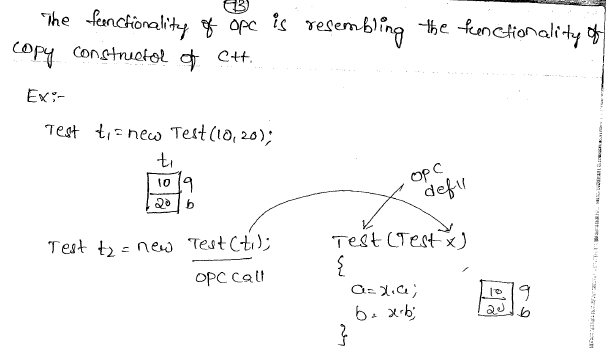 73
The functionality of OPC is resembling the functionality of
copy constructor of C++.
Ex:-
Test t1 = new Test(10, 20);
t1
10 a
20 b
OPC
defⁿ
Test t2 = new Test(t1);
OPC call
Test (Test x)
{
a = x.a;
b = x.b;
}
10 a
20 b